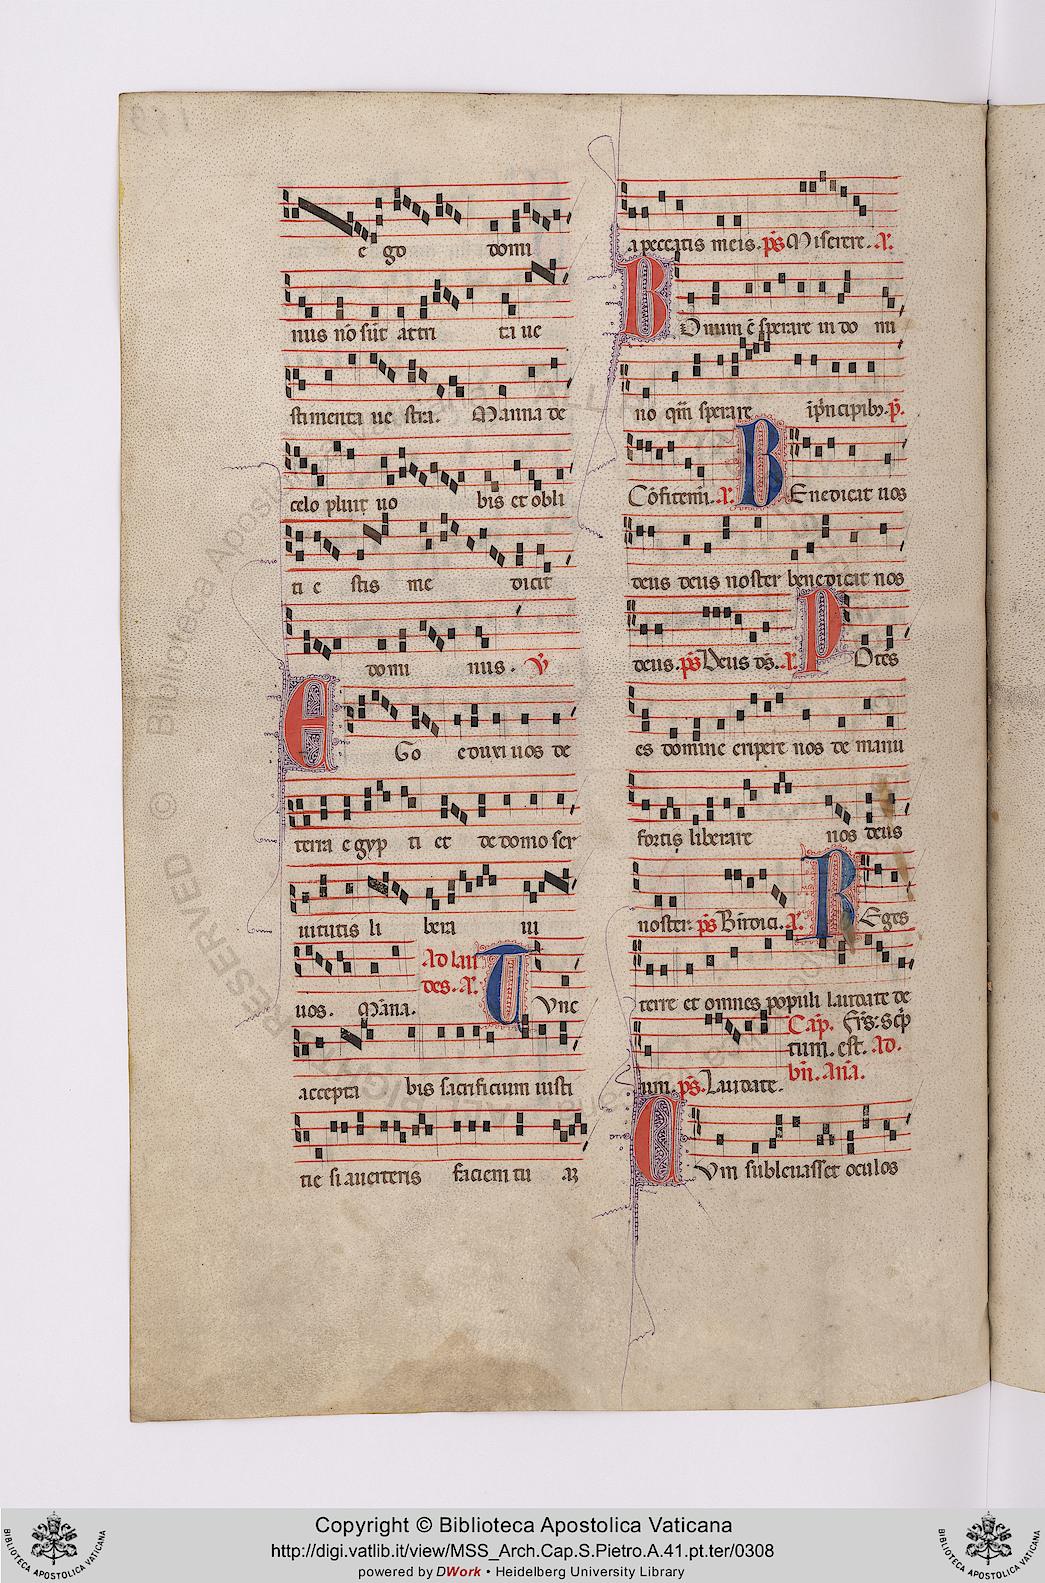 e go domi
nus nō sūt attri ta ue
stimenta ue stra. Manna de
celo pluit uo bis et obli
ti e stis me dicit
domi nus. V̄
E Go eduxi uos de
terra egyp ti et de domo ser
uitutis li bera ui
uos. Māna. Ad lau des. A. T Vnc
accepta bis sacrificium iusti
tie si auerteris faciem tu a
a peccatis meis. ps Miserere. A.
B Onum ē sperare in do mi
no qm̄ sperare
Cōfitemī. A. B Enedicat nos
deus deus noster benedicat nos
deus. ps Deus ds̄. A. P Otēs
es domine eripere nos de manu
fortis liberare nos deus
noster. ps A. R Eges
terre et omnes populi laudate de
um. ps. Laudate. Cap. tum. est. Ad. bn̄. Anā.
C Vm subleuasset oculos
Copyright © Biblioteca Apostolica Vaticana
http://digi.vatlib.it/view/MSS_Arch.Cap.S.Pietro.A.41.pt.ter/0308
powered by DWork • Heidelberg University Library
BIBLIOTECA APOSTOLICA VATICANA
BIBLIOTECA APOSTOLICA VATICANA